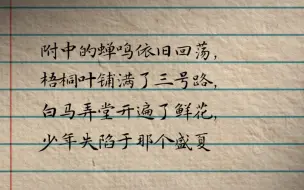 附中的蝉鸣依旧回荡，
梧桐叶铺满了三号路，
白马弄堂开遍了鲜花，
少年失陷于那个盛夏